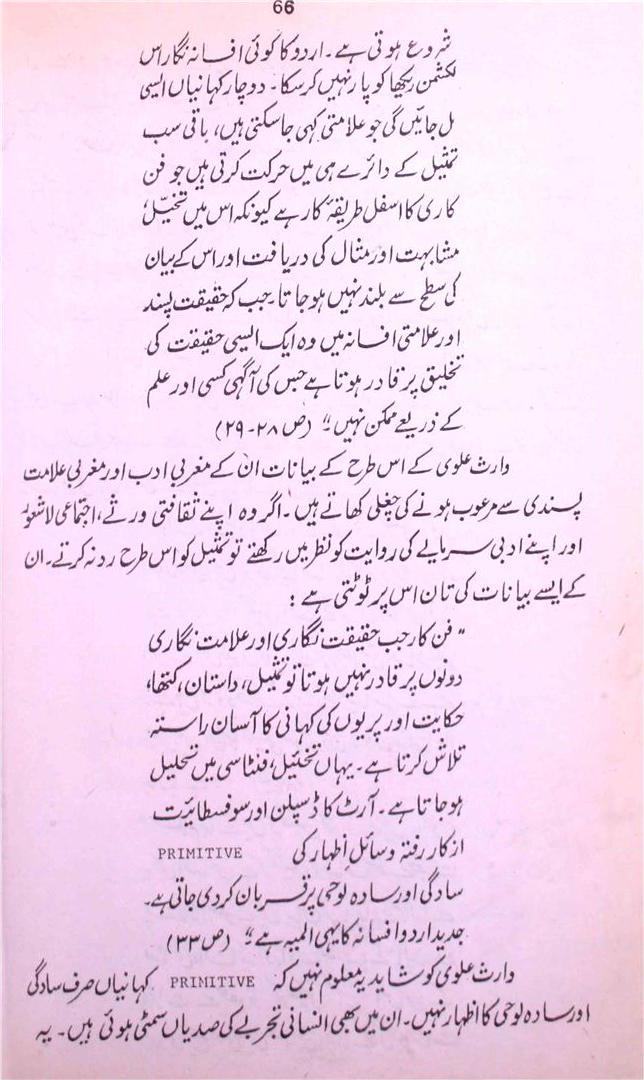 66
شروع ہوتی ہے۔ اردو کا کوئی افسانہ نگار اس
لکشمن ریکھا کو پار نہیں کرسکا۔ دوچار کہانیاں ایسی
مل جائیں گی جو علامتی کہی جا سکتی ہیں، باقی سب
تمثیل کے دائرے ہی میں حرکت کرتی ہیں جو فن
کاری کا اسفل طریقۂ کار ہے کیونکہ اس میں تخیّل
مشابہت اور مثال کی دریافت اور اس کے بیان
کی سطح سے بلند نہیں ہوجاتا۔ جب کہ حقیقت پسند
اور علامتی افسانہ میں وہ ایک ایسی حقیقت کی
تخلیق پر قادر ہوتا ہے جس کی آگہی کسی اور علم
کے ذریعے ممکن نہیں۔" (ص ۲۸-۲۹)
وارث علوی کے اس طرح کے بیانات ان کے مغربی ادب اور مغربی علامت
پسندی سے مرعوب ہونے کی چغلی کھاتے ہیں۔ اگر وہ اپنے ثقافتی ورثے، اجتماعی لاشعور
اور اپنے ادبی سرمایے کی روایت کو نظر میں رکھتے تو تمثیل کو اس طرح رد نہ کرتے۔ ان
کے ایسے بیانات کی تان اس پر ٹوٹتی ہے:
"فن کار جب حقیقت نگاری اور علامت نگاری
دونوں پر قادر نہیں ہوتا تو تمثیل، داستان، کتھا،
حکایت اور پریوں کی کہانی کا آسان راستہ
تلاش کرتا ہے۔ یہاں تخئیل، فنٹاسی میں تحلیل
ہوجاتا ہے۔ آرٹ کا ڈسپلن اور سوفسطائیت
ازکار رفتہ وسائل اظہار کی PRIMITIVE
سادگی اور سادہ لوحی پر قربان کردی جاتی ہے۔
جدید اردو افسانہ کا یہی المیہ ہے۔" (ص ۳۳)
وارث علوی کو شاید یہ معلوم نہیں کہ PRIMITIVE کہانیاں صرف سادگی
اور سادہ لوحی کا اظہار نہیں۔ ان میں بھی انسانی تجربے کی صدیاں سمٹی ہوئی ہیں۔ یہ